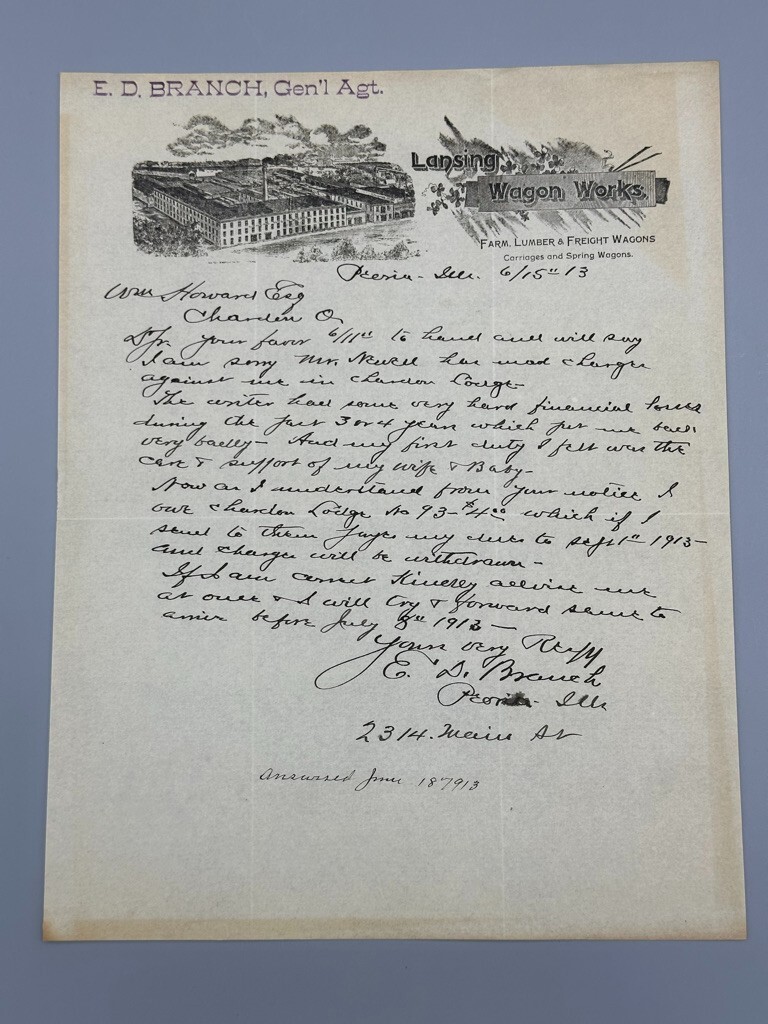 E. D. BRANCH, Gen'l Agt.
Lansing
Wagon Works.
FARM, LUMBER & FREIGHT WAGONS
Carriages and Spring Wagons.
Peoria - Ills. 6/15" 13
Wm Howard Esq
Chardon O.
D Sr. your favor 6/11" to hand and will say
I am sorry Mr. Newell has mad charges
against me in Chardon Lodge-
The writer had some very hard financial losses
during the last 3 or 4 years which put me back
very badly - And my first duty I felt was the
care & support of my wife & Baby-
Now as I understand from your notice I
owe Chardon Lodge No 93 - $4.00 which if I
send to them pays my dues to Sept 1st 1913-
and charges will be withdrawn -
If I am correct Kindly advise me
at once & I will try & forward same to
arrive before July 1913-
Yours very Resp
E. D. Branch
Peoria - Ills
2314. Main St
Answered June 18 1913